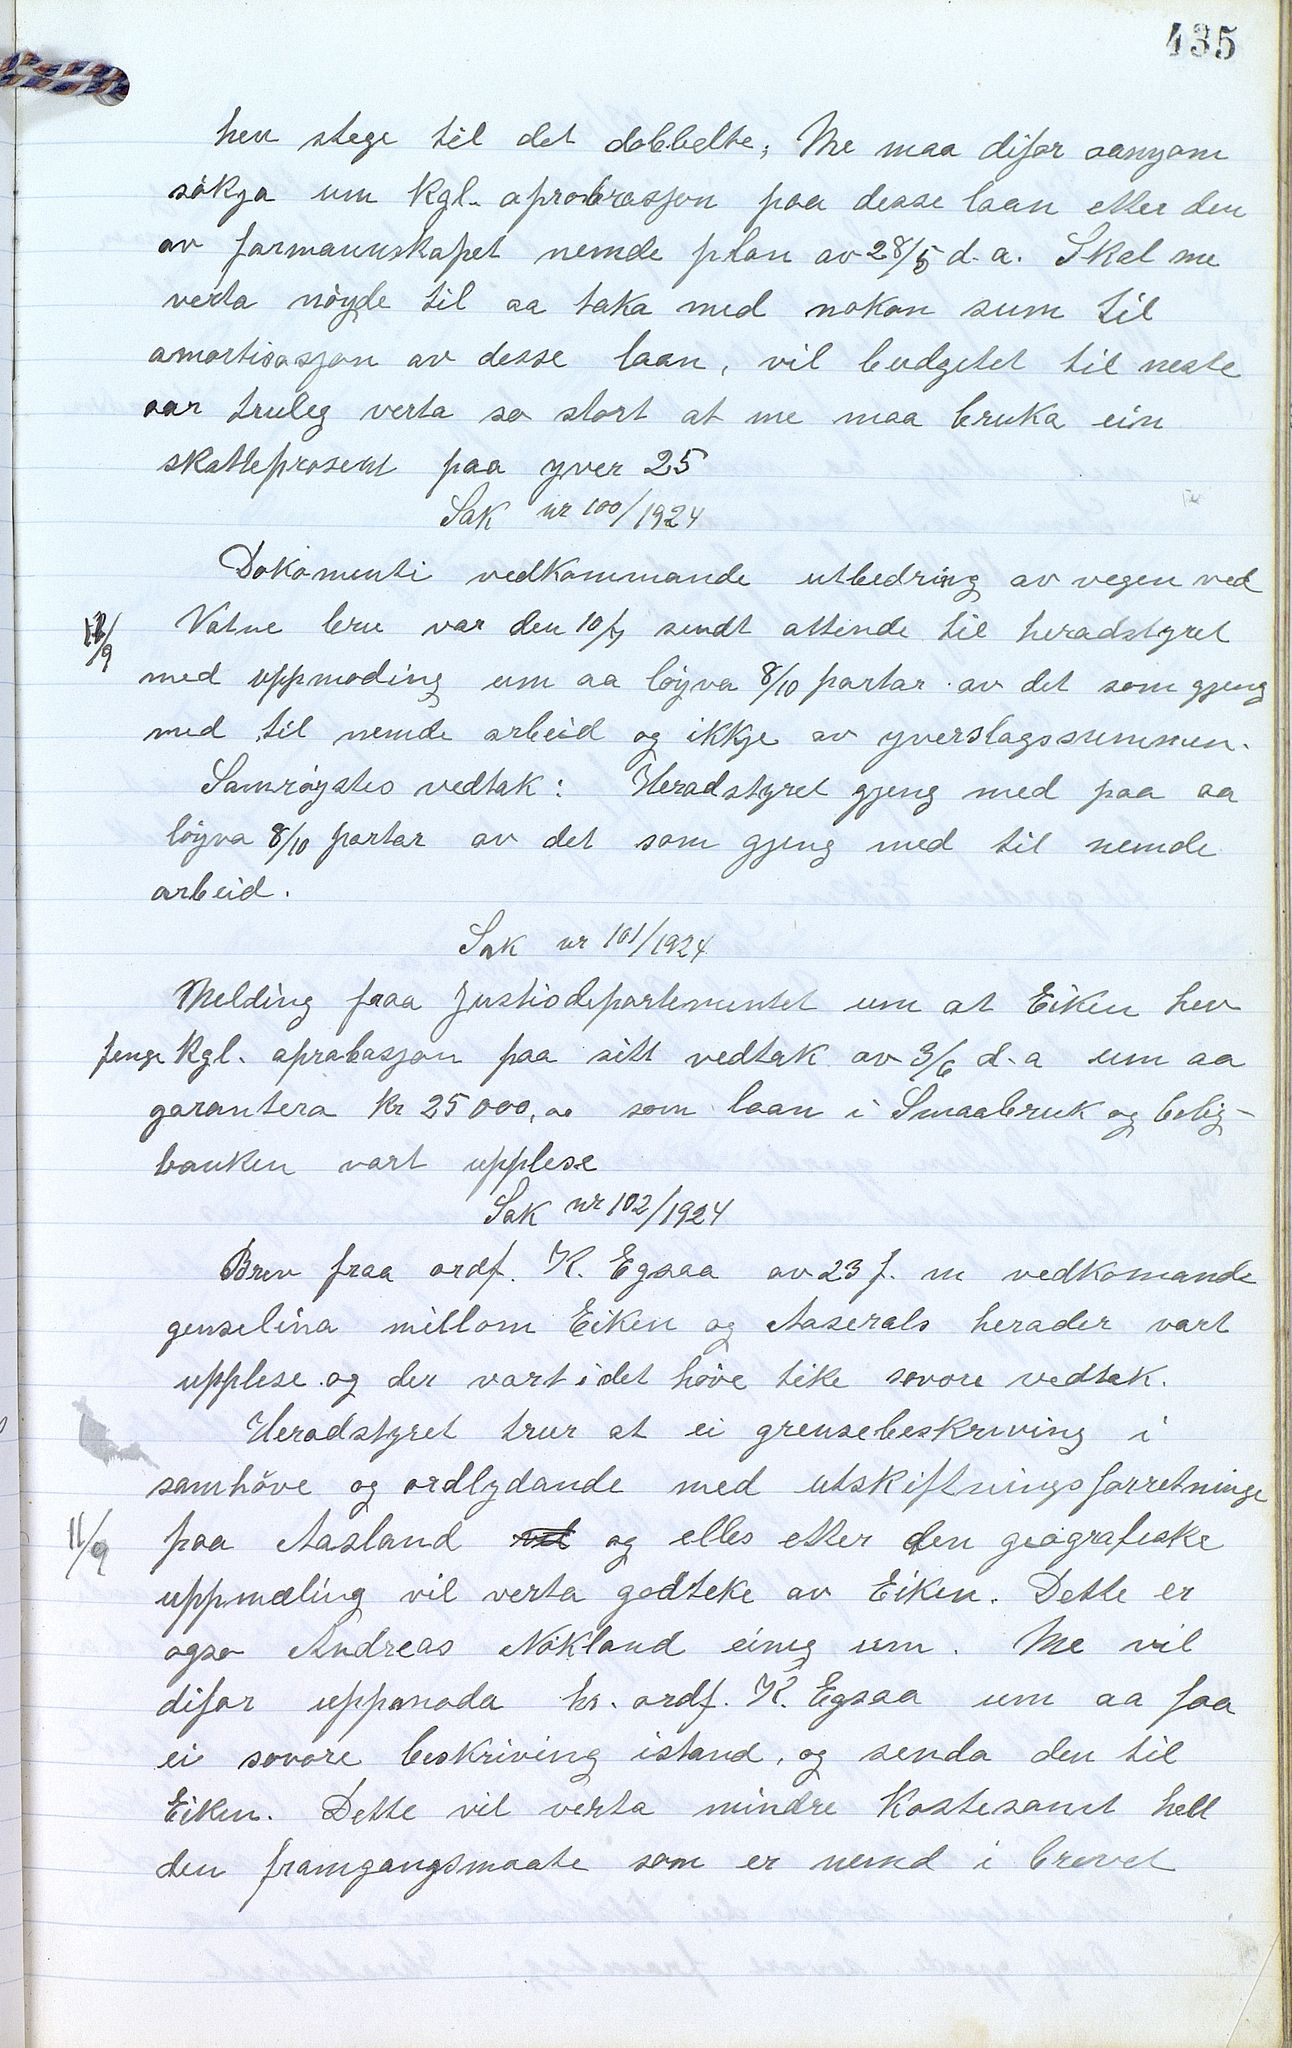 435
hev stege til det dobbelte; Me maa difor aanyom
søkja um kgl. aprobrasjon paa desse laan etter den
av formannskapet nemde plan av 28/5 d.a. Skal me
verta nøyde til aa taka med nokon sum til
amortisasjon av desse laan, vil budgetet til neste
aar truleg verta so stort at me maa bruka ein
skatteprosent paa yver 25
Sak nr 100/1924
Dokumenti vedkommande utbedring av vegen ved
Vatne bru var den 10/7 sendt attende til heradstyret
med uppmoding um aa løyva 8/10 partar av det som gjeng
med til nemde arbeid og ikkje av yverslagssummen.
Samrøystes vedtak: Heradstyret gjeng med paa aa
løyva 8/10 partar av det som gjeng med til nemde
arbeid.
Sak nr 101/1924
Melding fraa Justisdepartementet um at Eiken hev
fenge kgl. aprobasjon paa sitt vedtak av 3/6 d.a um aa
garantera kr 25000,00 som laan i Smaabruk og bolig-
banken vart upplese
Sak nr 102/1924
Brev fraa ordf. K. Egsaa av 23 f. m vedkomande
genselina millom Eiken og Aaserals herader vart
upplese og der vart i det høve teke sovore vedtak.
Heradstyret trur at ei grensebeskriving i
samhøve og ordlydande med utskiftningsforretninge
11/9 paa Aasland og elles etter den geografiske
uppmæling vil verta godteke av Eiken. Dette er
ogso Andreas Nökland einig um. Me vil
difor uppmoda hr. ordf. K. Egsaa um aa faa
ei sovore beskriving istand, og senda den til
Eiken. Dette vil verta mindre kostesamt hell
den framgangsmaate som er nemd i brevet